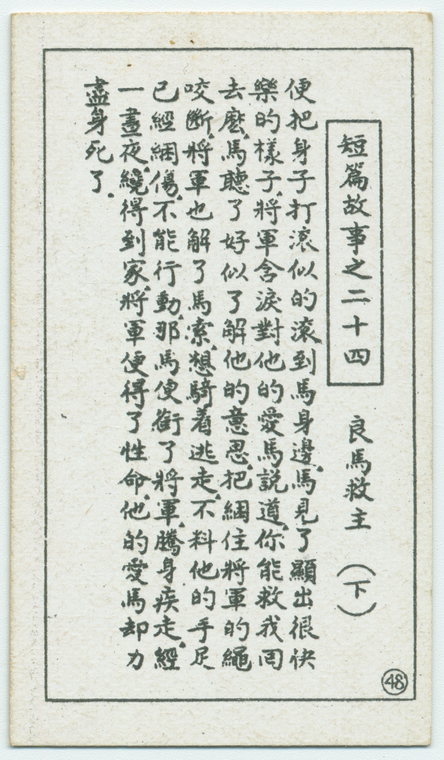 短篇故事之二十四
良馬救主（下）
便把身子打滾似的滾到馬身邊.馬見了顯出很快
樂的樣子.將軍含淚對他的愛馬說道.你能救我囘
去麽.馬聽了好似了解他的意思.把綑住將軍的繩
咬斷.將軍也解了馬索.想騎着逃走.不料他的手足
已經綑傷.不能行動.那馬便銜了將軍.騰身疾走.經
一晝夜.纔得到家.將軍便得了性命.他的愛馬却力
盡身死了.
48